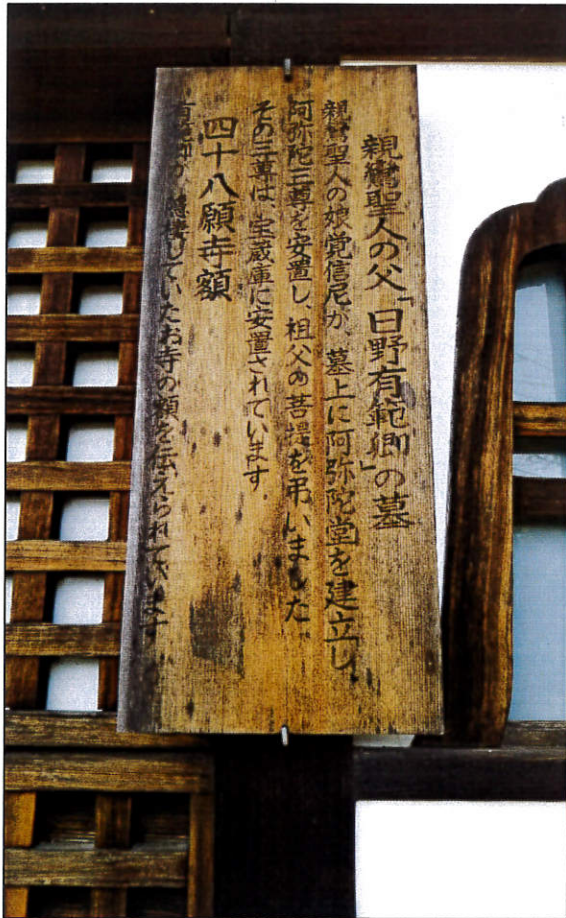 親鸞聖人の父「日野有範卿」の墓
親鸞聖人の娘覚信尼が、墓上に阿弥陀堂を建立し、
阿弥陀三尊を安置し、祖父の菩提を弔いました
その三尊は、宝蔵庫に安置されています。
四十八願寺額
有範卿が隠棲していたお寺の額を伝えられています